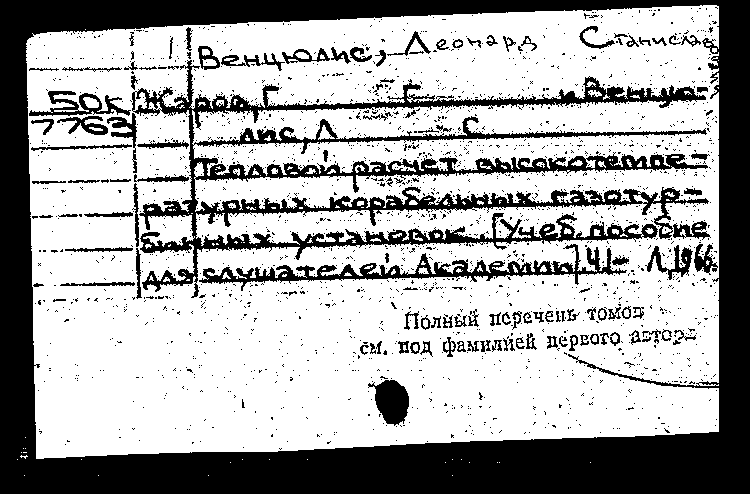 Венцюлис, Леонард Станислав
50к Жаров, Г Г и Венцю-
7763 лис, Л С
Тепловой расчет высокотемпе-
ратурных корабельных газотур-
бинных установок. [Учеб. пособие
для слушателей Академии]. Ч.1- Л, 1966.
Полный перечень томов
см. под фамилией первого автора